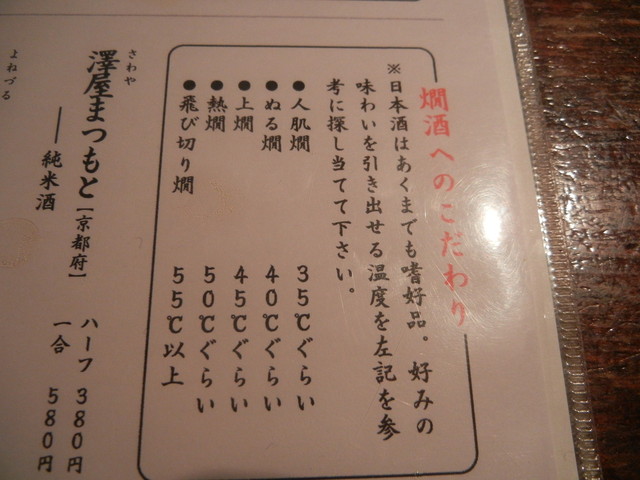 燗酒へのこだわり
※日本酒はあくまでも嗜好品。好みの
味わいを引き出せる温度を左記を参
考に探し当てて下さい。
●人肌燗 35℃ぐらい
●ぬる燗 40℃ぐらい
●上燗 45℃ぐらい
●熱燗 50℃ぐらい
●飛び切り燗 55℃以上
さわや
澤屋まつもと【京都府】
―純米酒
ハーフ 380円
一合 580円
よねづる